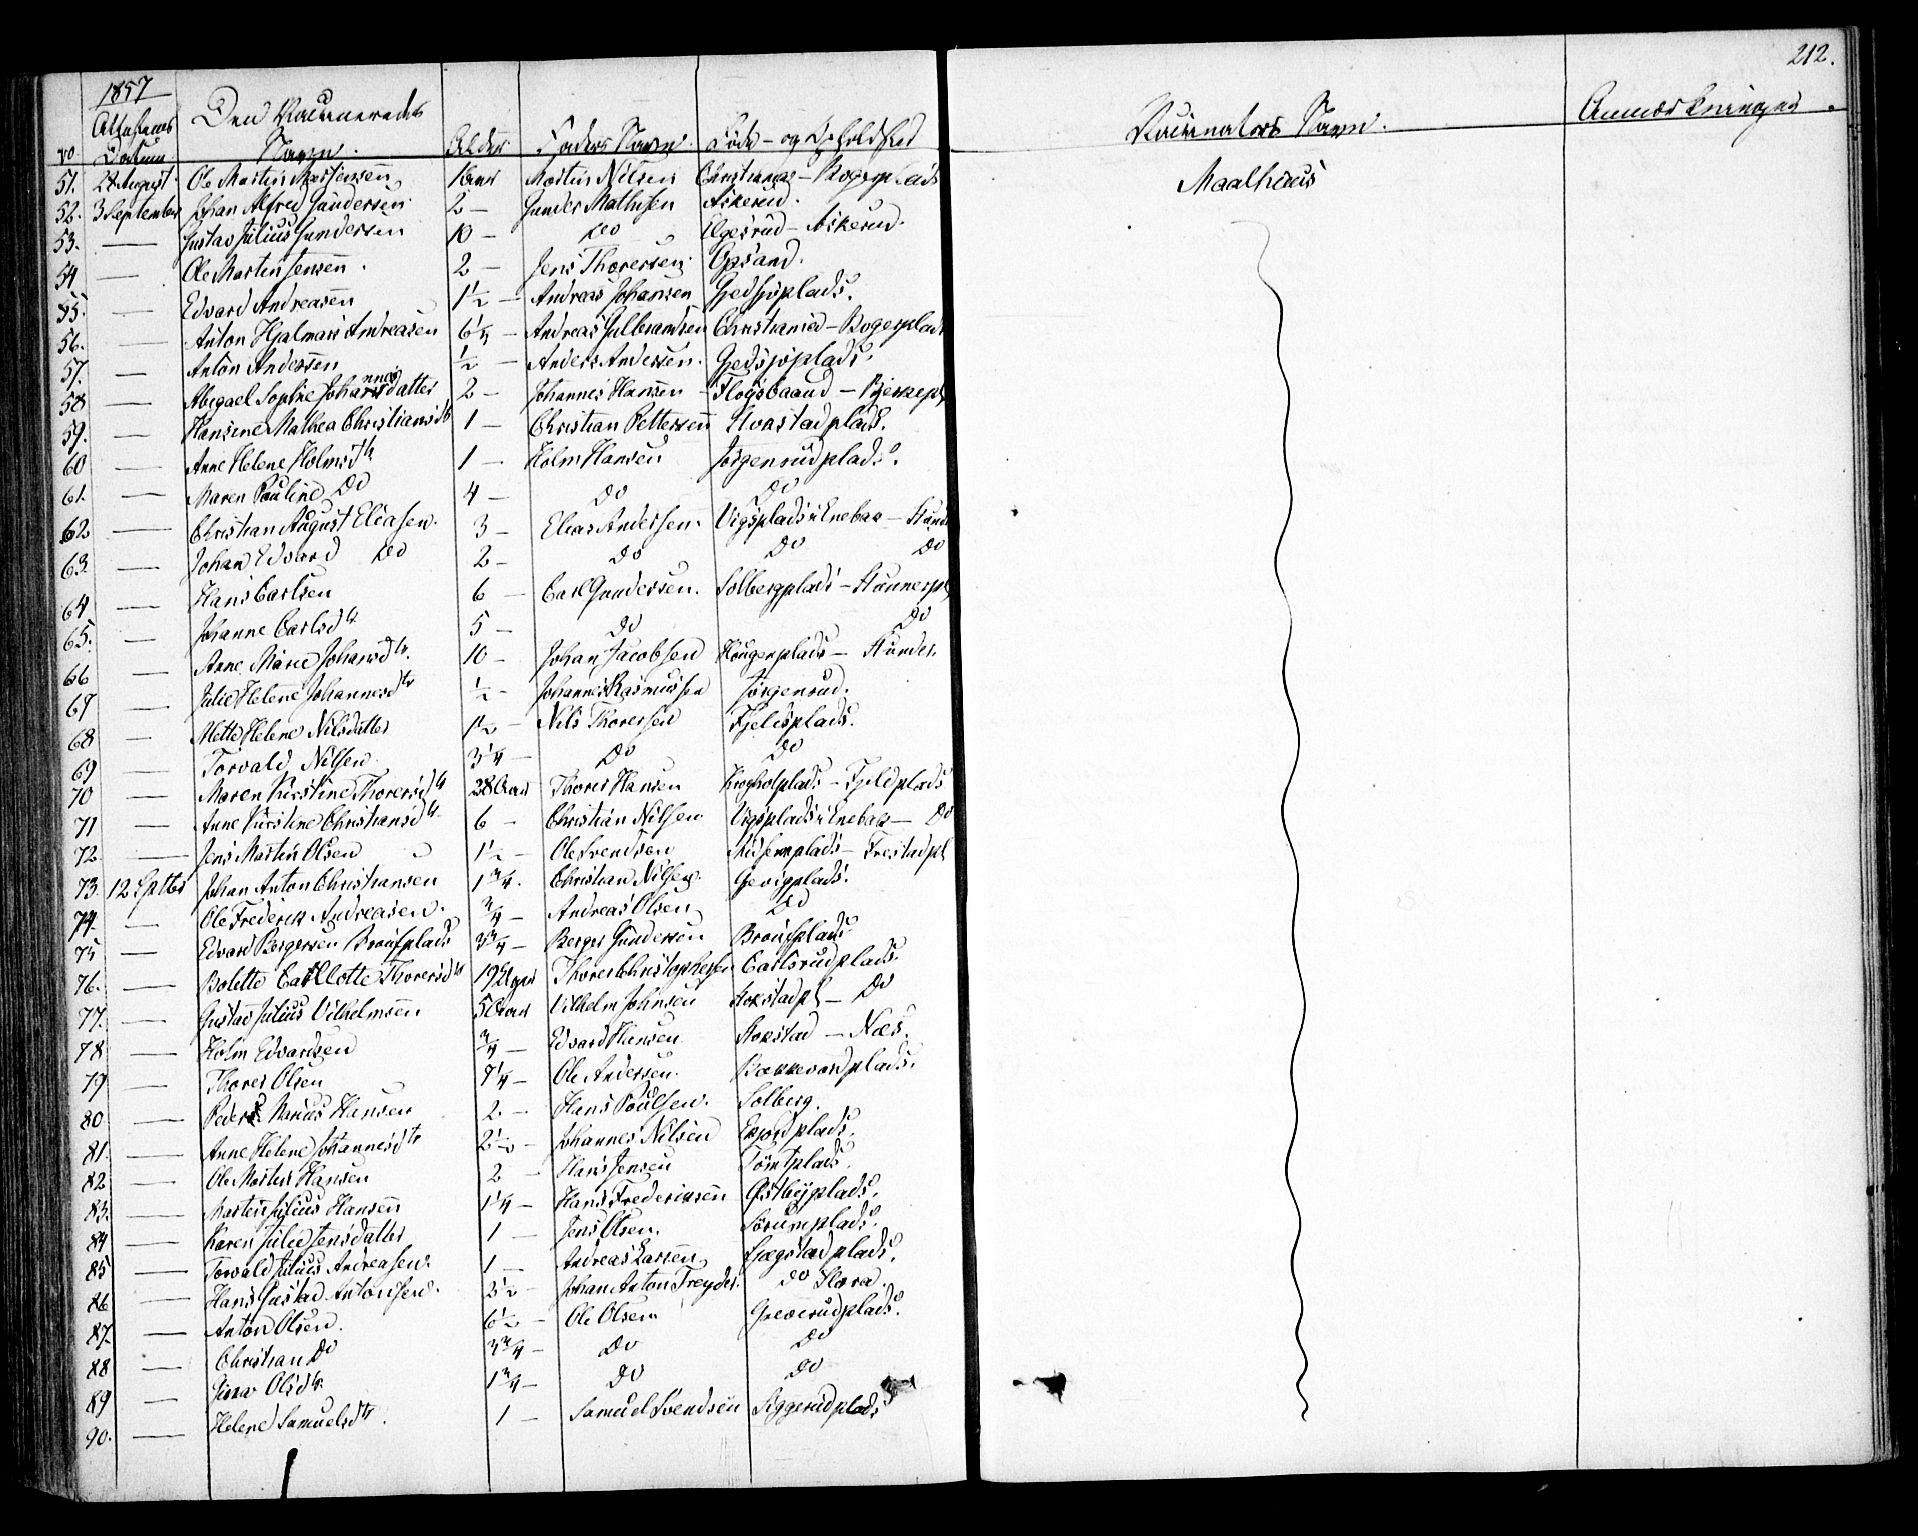 212.
1857
Attestens Den Vaccineredes Vaccinators Navn. Anmærkninger.
No Datum Navn. Alder Faders Navn. Føde- og Opholdssted
51. 28 August Ole Martin Mortensen 1 Aar Morten Nilsen Christiania - Bogerplads Maalhuus
52. 3 September Johan Alfred Gundersen 2 - Gunder Mathisen Askerud.
53. — Gustav Julius Gundersen 10 - Do - Askerud.
54 — Ole Martin Jensen. 2 - Jens Thoresen. Opsand.
55. — Edvard Andreasen 1½ - Andreas Johansen Gjedsjøplads.
56. — Anton Hjalmar Andreasen 6¼ - Andreas Gulbrandsen Christiania - Bogerplads
57. — Anton Andersen ½ - Anders Andersen. Gjedsjøplads.
58 — Abegael Sophie Johannesdatter 2 - Johannes Hansen - Bjerkepl
59. — Hansine Mathea Christiansdtr 1 - Christian Pettersen Hvastadplads.
60 — Anne Helene Holmsdtr 1 - Holm Hansen Jørgensrudplads.
61. — Maren Pauline Do 4 - Do Do
62 — Christian August Eliasen. 3 - Elias Andersen. Vigsplads i Enebak -
63. — Johan Edvard Do 2 - Do Do Do
64 — Hans Carlsen 6 - Carl Gundersen. Solbergplads - Stunnerpl
65. — Johanne Carlsdtr 5 - Do Do
66 — Anne Marie Johansdtr. 10 - Johan Jacobsen Haugerplads -
67 — Julie Helene Johannesdtr ½ - Johannes Rasmussen Jørgensrud.
68 — Mette Helene Nilsdatter 1½ - Nils Thoresen Fjeldsplads.
69 — Torvald Nilsen 3¼ - Do Do
70 — Maren Kirstine Thoresdtr 28 Aar Thores Hansen Krogholplads - Fjeldplads
71 — Anne Kirstine Christiansdtr 6 - Christian Nilsen Vigsplads i Enebak - Do
72. — Jens Martin Olsen 1½ - Ole Svendsen - Frestadpl
73. 12. Sptbr Johan Anton Christiansen 1¾. Christian Nilsen. Gjevigplads.
74. — Ole Frederik Andreasen. ¾ - Andreas Olsen Do
75 — Edvard Bergersen Brousplads 3¾ - Berger Gundersen Brousplads
76. — Bolette Carllotte Thoresdtr 19 Uger Thores Christophersen Carlsrudplads.
77. — Gustav Julius Vilhelmsen 5 Aar Vilhelm Johnsen Stokstadpl - Do
78 — Holm Edvardsen ¾ - Edvard Hansen Stokstad - Næs.
79. — Thores Olsen 7¼ - Ole Andersen. Bakkevandplads.
80 — Peder Marius Hansen 2. - Hans Poulsen. Solberg.
81. — Anne Helene Johannesdtr 2½ - Johannes Nilsen
82 — Ole Martin Hansen 2 - Hans Jensen Tømtplads.
83. — Martin Julius Hansen 1¼ - Hans Frederiksen Østbyplads.
84 — Karen Julie Jensdatter 1 - Jens Olsen. Sørumplads.
85 — Torvald Julius Andreasen. 1 - Andreas Larsen plads.
86 — Hans Gustad Antonsen. 2½ - Johan Anton Treyder. Do
87. — Anton Olsen. 6½ - Ole Olsen plads.
88 — Christian Do 3¾ - Do Do
89 — Olsdtr. 1¾ - Do Do
90. — Helene Samuelsdtr. 1 - Samuel Svendsen Siggerudplads